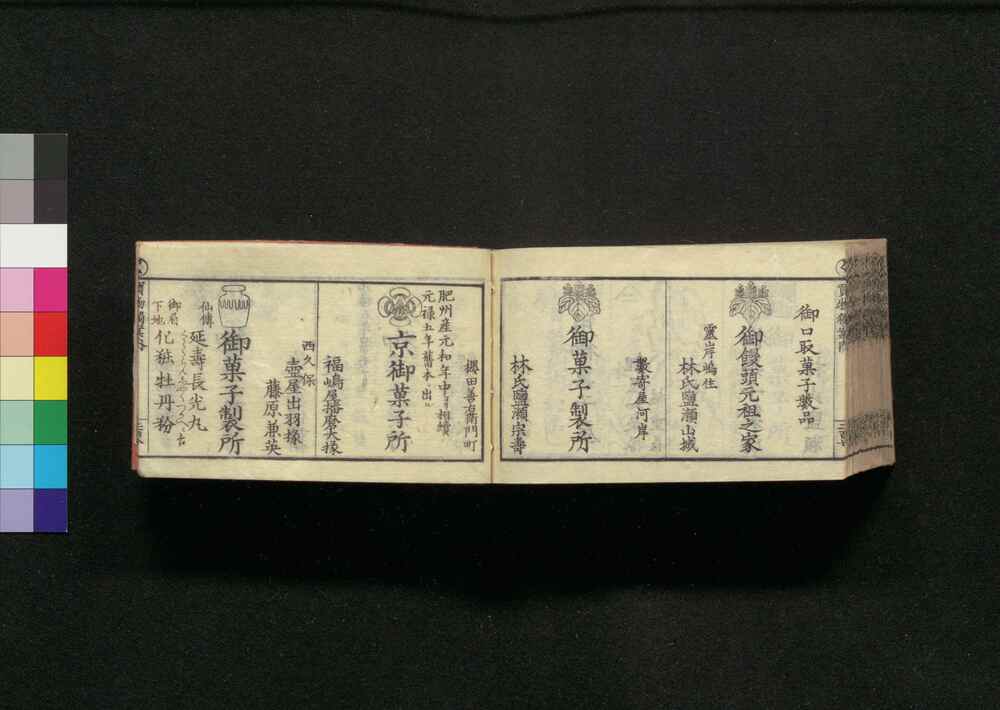 御口取菓子製品
御饅頭元祖之家
靈岸嶋住
林氏鹽瀬山城
數寄屋河岸
御菓子製所
林氏鹽瀬宗壽
櫻田善右衛門町
肥州産元和年中ゟ相續
元禄五年舊本出
京御菓子所
福嶋屋播磨大掾
西久保
壺屋出羽掾
藤原兼英
御菓子製所
仙傳
延壽長光丸
御眉
下地
化粧牡丹粉